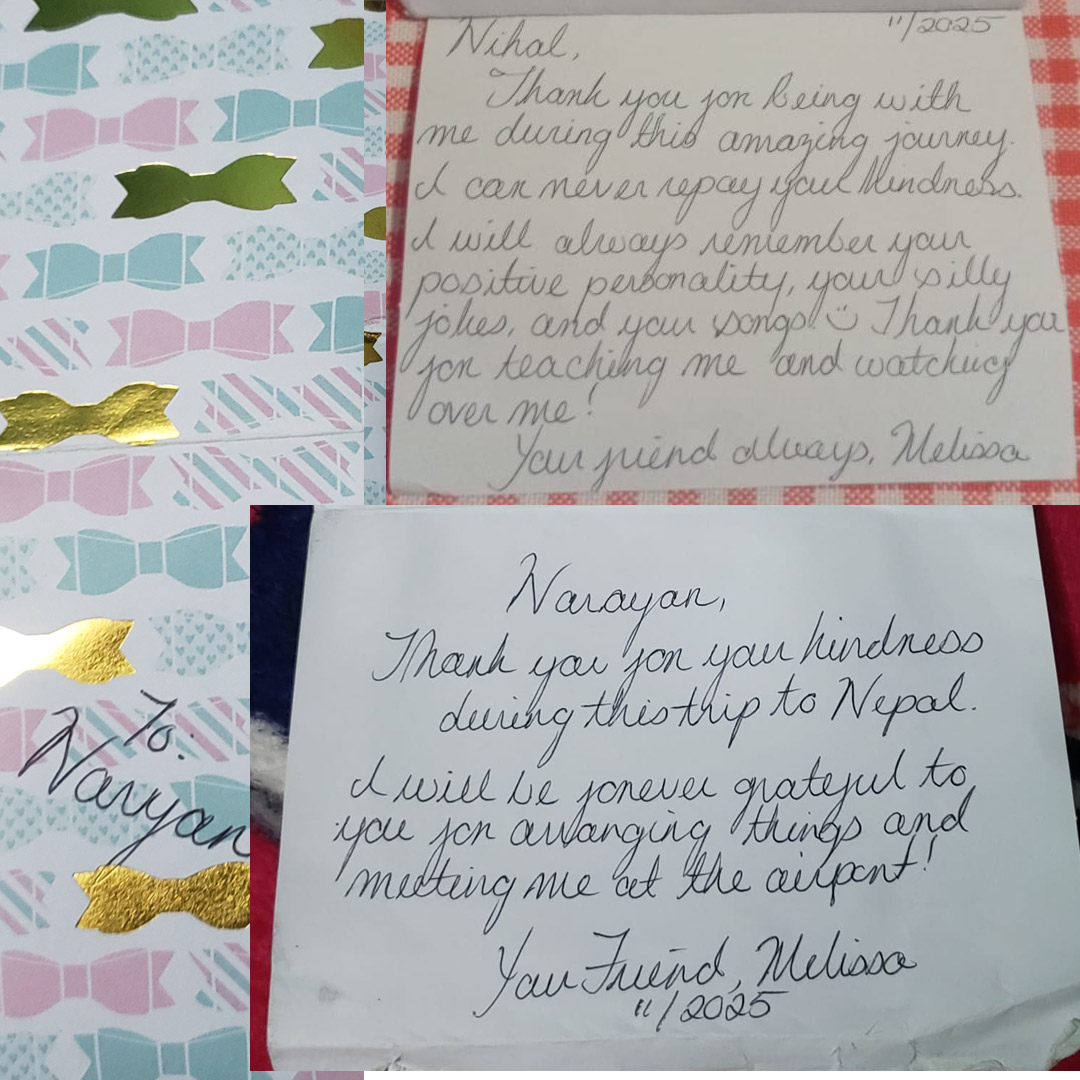 Nihal,
11/2025
Thank you for being with
me during this amazing journey.
I can never repay your kindness.
I will always remember your
positive personality, your silly
jokes, and your songs! Thank you
for teaching me and watching
over me!
Your friend always, Melissa
To:
Naryan
Narayan,
Thank you for your kindness
during this trip to Nepal.
I will be forever grateful to
you for arranging things and
meeting me at the airport!
Your Friend, Melissa
11/2025